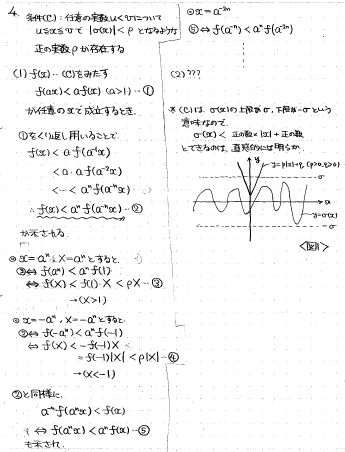 4. 条件(C): 任意の実数 u<v について
u≦x≦v で |σ(x)|<p となるような
正の実数 p が存在する
(1) f(x)…(C)をみたす
f(ax)<a f(x) (a>1) …①
が任意の x で成立するとき、
①をくり返し用いることで、
f(x)<a f(a⁻¹x)
<a·a f(a⁻²x)
<…<aⁿf(a⁻ⁿx)
∴ f(x)<aⁿf(a⁻ⁿx) …②
が示される。
◎ x=aⁿ, X=aⁿ とすると
②⇔ f(aⁿ)<aⁿf(1)
⇔ f(X)<f(1)·X<pX …③
→(X>1)
◎ x=-aⁿ, X=-aⁿ とすると
②⇔ f(-aⁿ)<aⁿf(-1)
⇔ f(X)<-f(-1)X
=f(-1)|X|<p|X| …④
→(X<-1)
②と同様に
a⁻ⁿf(aⁿx)<f(x)
⇔ f(aⁿx)<aⁿf(x) …⑤
も示され、
◎ x=a⁻²ⁿ
⑤⇔ f(a⁻ⁿ)<aⁿf(a⁻²ⁿ)
(2) ???
※ (C)は、σ(x)の上限がσ、下限が-σという
意味なので、
σ(x)<正の数×|x|+正の数
とできるのは、直感的には明らか。
y
y=p|x|+q (p>0,q>0)
σ
x
y=σ(x)
-σ
<図1>